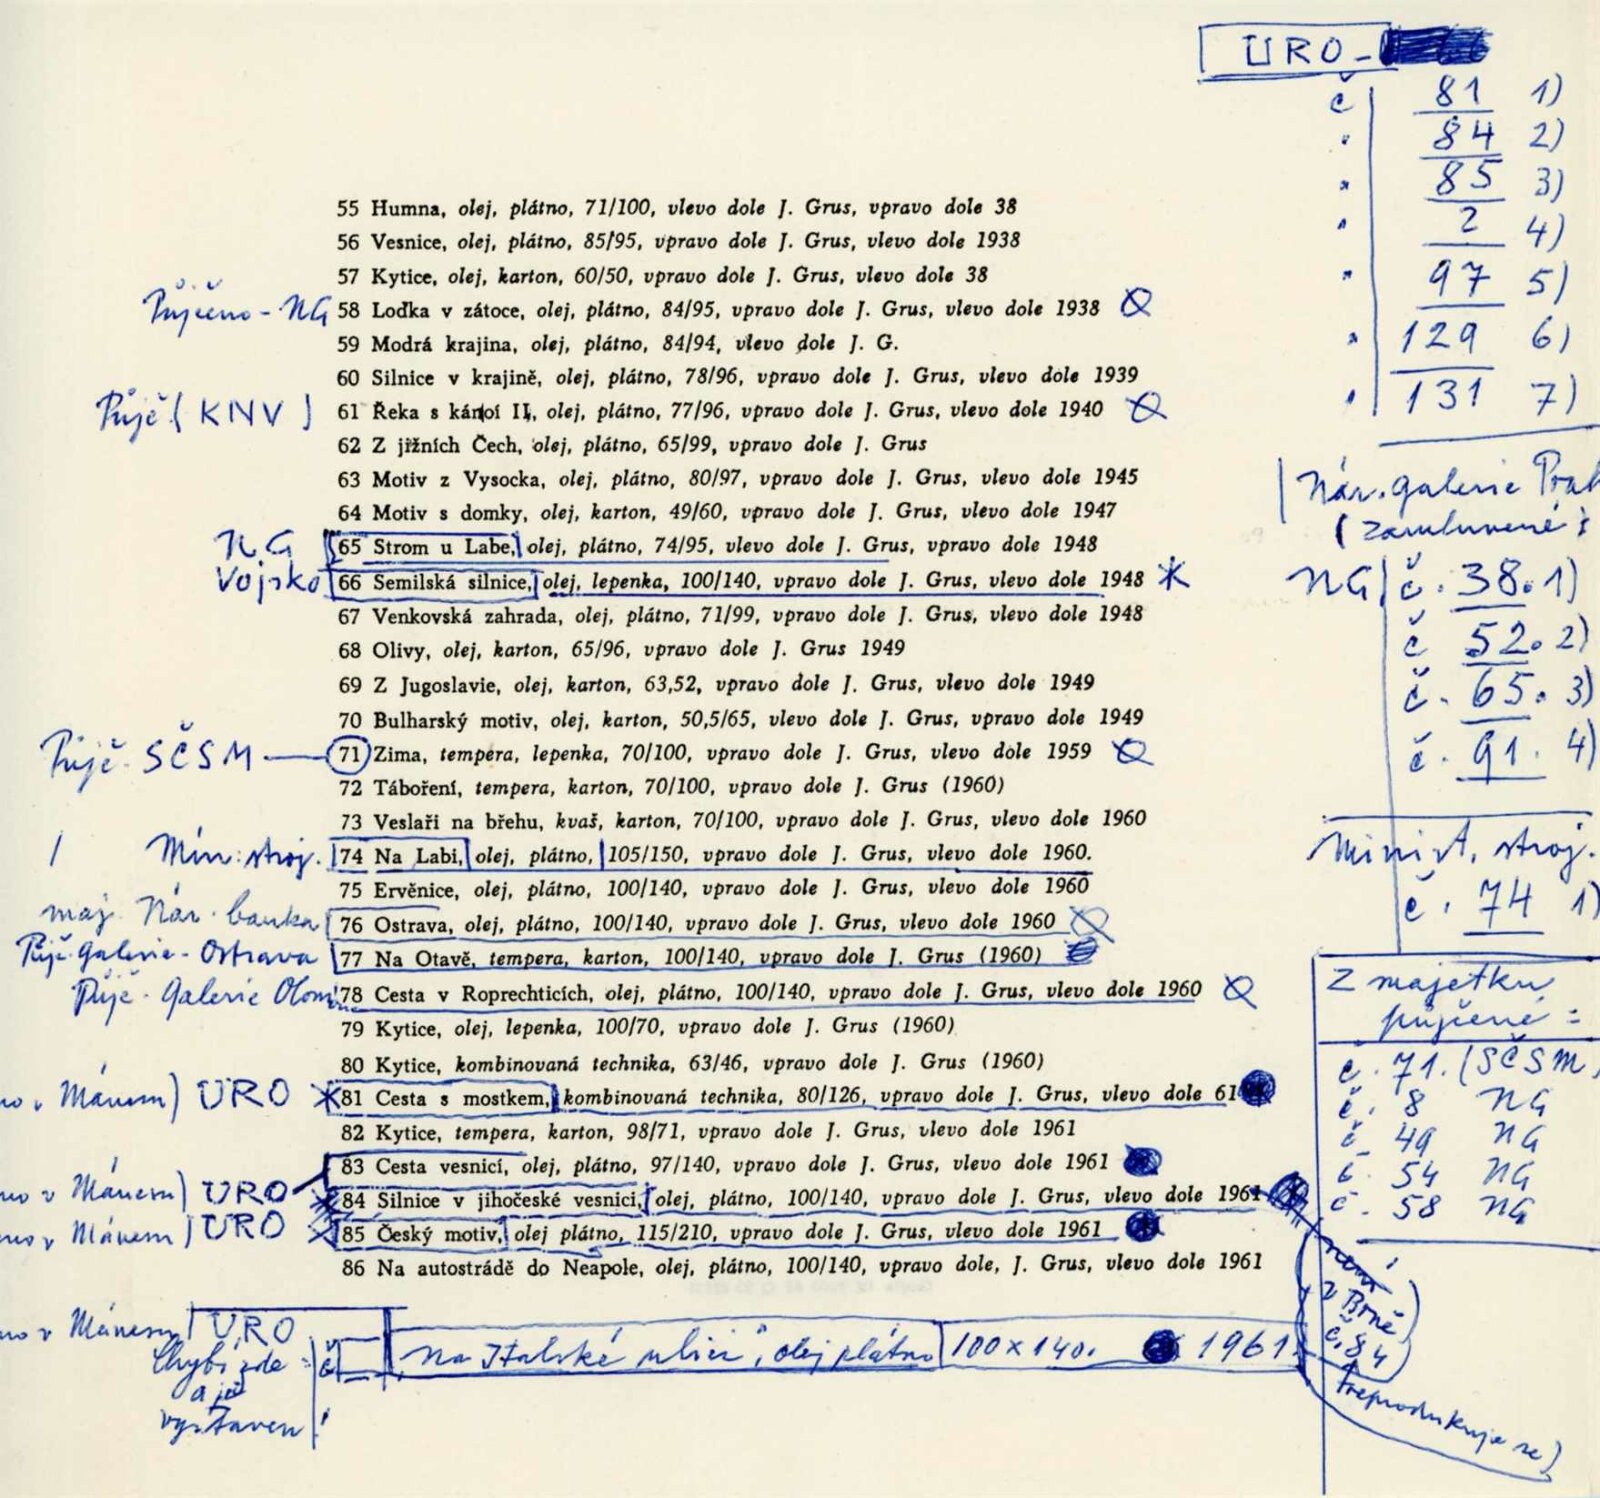 URO -
č 81 1)
" 84 2)
" 85 3)
" 2 4)
" 97 5)
" 129 6)
" 131 7)
55 Humna, olej, plátno, 71/100, vlevo dole J. Grus, vpravo dole 38
56 Vesnice, olej, plátno, 85/95, vpravo dole J. Grus, vlevo dole 1938
57 Kytice, olej, karton, 60/50, vpravo dole J. Grus, vlevo dole 38
Půjčeno - NG 58 Loďka v zátoce, olej, plátno, 84/95, vpravo dole J. Grus, vlevo dole 1938
59 Modrá krajina, olej, plátno, 84/94, vlevo dole J. G.
60 Silnice v krajině, olej, plátno, 78/96, vpravo dole J. Grus, vlevo dole 1939
Půjč (KNV) 61 Řeka s kánoí II, olej, plátno, 77/96, vpravo dole J. Grus, vlevo dole 1940
62 Z jižních Čech, olej, plátno, 65/99, vpravo dole J. Grus
63 Motiv z Vysocka, olej, plátno, 80/97, vpravo dole J. Grus, vlevo dole 1945
64 Motiv s domky, olej, karton, 49/60, vpravo dole J. Grus, vlevo dole 1947
NG 65 Strom u Labe, olej, plátno, 74/95, vlevo dole J. Grus, vpravo dole 1948
Vojsko 66 Semilská silnice, olej, lepenka, 100/140, vpravo dole J. Grus, vlevo dole 1948
67 Venkovská zahrada, olej, plátno, 71/99, vpravo dole J. Grus, vlevo dole 1948
68 Olivy, olej, karton, 65/96, vpravo dole J. Grus 1949
69 Z Jugoslavie, olej, karton, 63,52, vpravo dole J. Grus, vlevo dole 1949
70 Bulharský motiv, olej, karton, 50,5/65, vlevo dole J. Grus, vpravo dole 1949
Půjč. SČSM 71 Zima, tempera, lepenka, 70/100, vpravo dole J. Grus, vlevo dole 1959
72 Táboření, tempera, karton, 70/100, vpravo dole J. Grus (1960)
73 Veslaři na břehu, kvaš, karton, 70/100, vpravo dole J. Grus, vlevo dole 1960
Min. stroj. 74 Na Labi, olej, plátno, 105/150, vpravo dole J. Grus, vlevo dole 1960.
75 Ervěnice, olej, plátno, 100/140, vpravo dole J. Grus, vlevo dole 1960
maj. Nár. banka 76 Ostrava, olej, plátno, 100/140, vpravo dole J. Grus, vlevo dole 1960
Půjč. galerie - Ostrava 77 Na Otavě, tempera, karton, 100/140, vpravo dole J. Grus (1960)
Půjč. Galerie 78 Cesta v Roprechticích, olej, plátno, 100/140, vpravo dole J. Grus, vlevo dole 1960
79 Kytice, olej, lepenka, 100/70, vpravo dole J. Grus (1960)
80 Kytice, kombinovaná technika, 63/46, vpravo dole J. Grus (1960)
no v Mánesu) URO 81 Cesta s mostkem, kombinovaná technika, 80/126, vpravo dole J. Grus, vlevo dole 61
82 Kytice, tempera, karton, 98/71, vpravo dole J. Grus, vlevo dole 1961
83 Cesta vesnicí, olej, plátno, 97/140, vpravo dole J. Grus, vlevo dole 1961
no v Mánesu) URO 84 Silnice v jihočeské vesnici, olej, plátno, 100/140, vpravo dole J. Grus, vlevo dole 1961
no v Mánesu) URO 85 Český motiv, olej plátno, 115/210, vpravo dole J. Grus, vlevo dole 1961
86 Na autostrádě do Neapole, olej, plátno, 100/140, vpravo dole, J. Grus, vlevo dole 1961
no v Mánesu) URO
Chybí zde = č
a je
vystaven!
Na Italské ulici, olej plátno 100 x 140. 1961.
Nár. galerie Prah
(zamluvené)
NG č. 38. 1)
č 52. 2)
č. 65. 3)
č. 91. 4)
Minist. stroj.
č. 74 1)
Z majetku
půjčené =
č. 71. (SČSM)
č. 8 NG
č. 49 NG
č. 54 NG
č. 58 NG
není
v Brně
č. 84
(reprodukuje se)